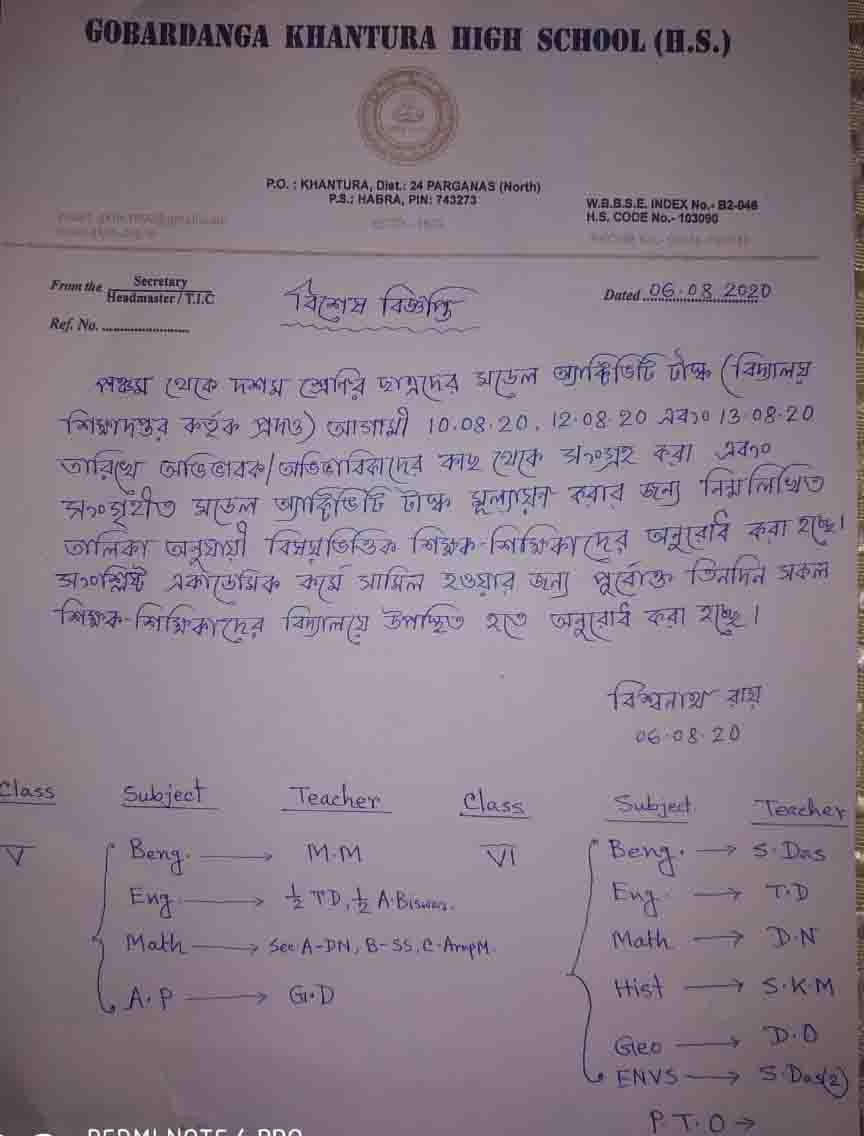 GOBARDANGA KHANTURA HIGH SCHOOL (H.S.)
P.O. : KHANTURA, Dist.: 24 PARGANAS (North)
P.S.: HABRA, PIN: 743273
W.B.B.S.E. INDEX No.- B2-046
H.S. CODE No.- 103090
From the Secretary
Headmaster / T.I.C
বিশেষ বিজ্ঞপ্তি
Dated 06.08.2020
Ref. No.
পঞ্চম থেকে দশম শ্রেণির ছাত্রদের মডেল অ্যাক্টিভিটি টাস্ক (বিদ্যালয়
শিক্ষাদপ্তর কর্তৃক প্রদত্ত) আগামী 10.08.20, 12.08.20 এবং 13.08.20
তারিখে অভিভাবক/অভিভাবিকাদের কাছ থেকে সংগ্রহ করা এবং
সংগৃহীত মডেল অ্যাক্টিভিটি টাস্ক মূল্যায়ন করার জন্য নিম্নলিখিত
তালিকা অনুযায়ী বিষয়ভিত্তিক শিক্ষক-শিক্ষিকাদের অনুরোধ করা হচ্ছে।
সংশ্লিষ্ট একাডেমিক কর্মে সামিল হওয়ার জন্য পূর্বোক্ত তিনদিন সকল
শিক্ষক-শিক্ষিকাদের বিদ্যালয়ে উপস্থিত হতে অনুরোধ করা হচ্ছে।
বিশ্বনাথ রায়
06.08.20
Class Subject Teacher
V
Beng. → M.M
Eng → ½ TD, ½ A.Biswas.
Math → Sec A-DN, B-SS, C-
A.P → G.D
Class Subject Teacher
VI
Beng. → S.Das
Eng. → T.D
Math → D.N
Hist → S.K.M
Geo → D.D
ENVS → S.Das(2)
P.T.O →